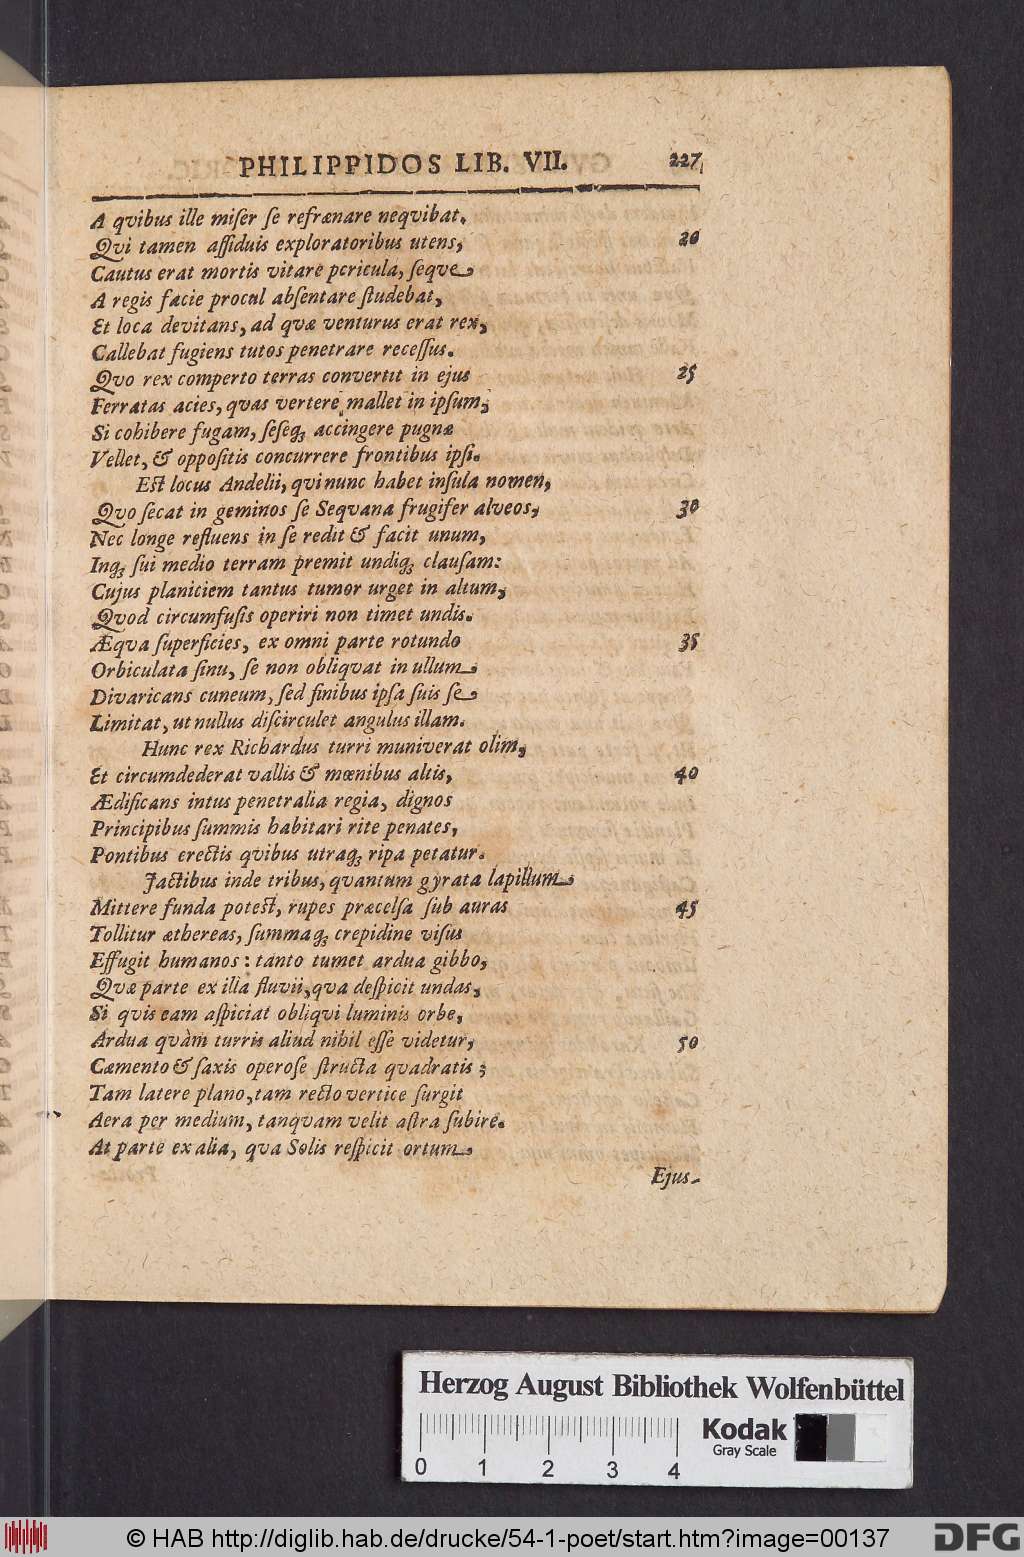 PHILIPPIDOS LIB. VII. 227
A qvibus ille miſer ſe refrænare neqvibat.
Qvi tamen aſſiduis exploratoribus utens, 20
Cautus erat mortis vitare pericula, ſeqve
A regis facie procul abſentare ſtudebat,
Et loca devitans, ad qvæ venturus erat rex,
Callebat fugiens tutos penetrare receſſus.
Qvo rex comperto terras convertit in ejus 25
Ferratas acies, qvas vertere mallet in ipſum,
Si cohibere fugam, ſeſeqꝫ accingere pugnæ
Vellet, & oppoſitis concurrere frontibus ipſi.
Eſt locus Andelii, qui nunc habet inſula nomen,
Qvo ſecat in geminos ſe Seqvana frugifer alveos, 30
Nec longe refluens in ſe redit & facit unum,
Inqꝫ ſui medio terram premit undiqꝫ clauſam:
Cujus planitiem tantus tumor urget in altum,
Qvod circumfuſis operiri non timet undis.
Æqva ſuperficies, ex omni parte rotundo 35
Orbiculata ſinu, ſe non obliqvat in ullum
Divaricans cuneum, ſed finibus ipſa ſuis ſe
Limitat, ut nullus diſcirculet angulus illam.
Hunc rex Richardus turri muniverat olim,
Et circumdederat vallis & mœnibus altis, 40
Ædificans intus penetralia regia, dignos
Principibus ſummis habitari rite penates,
Pontibus erectis qvibus utraqꝫ ripa petatur.
Jactibus inde tribus, qvantum gyrata lapillum
Mittere funda poteſt, rupes præcelſa ſub auras 45
Tollitur æthereas, ſummaqꝫ crepidine viſus
Effugit humanos: tanto tumet ardua gibbo,
Qvæ parte ex illa fluvii, qva deſpicit undas,
Si qvis eam aſpiciat obliqvi luminis orbe,
Ardua qvàm turris aliud nihil eſſe videtur, 50
Cæmento & ſaxis operoſe ſtructa qvadratis;
Tam latere plano, tam recto vertice ſurgit
Aera per medium, tanqvam velit aſtra ſubire.
At parte ex alia, qva Solis reſpicit ortum
Ejus-
Herzog August Bibliothek Wolfenbüttel
Kodak
Gray Scale
0 1 2 3 4
© HAB http://diglib.hab.de/drucke/54-1-poet/start.htm?image=00137
DFG